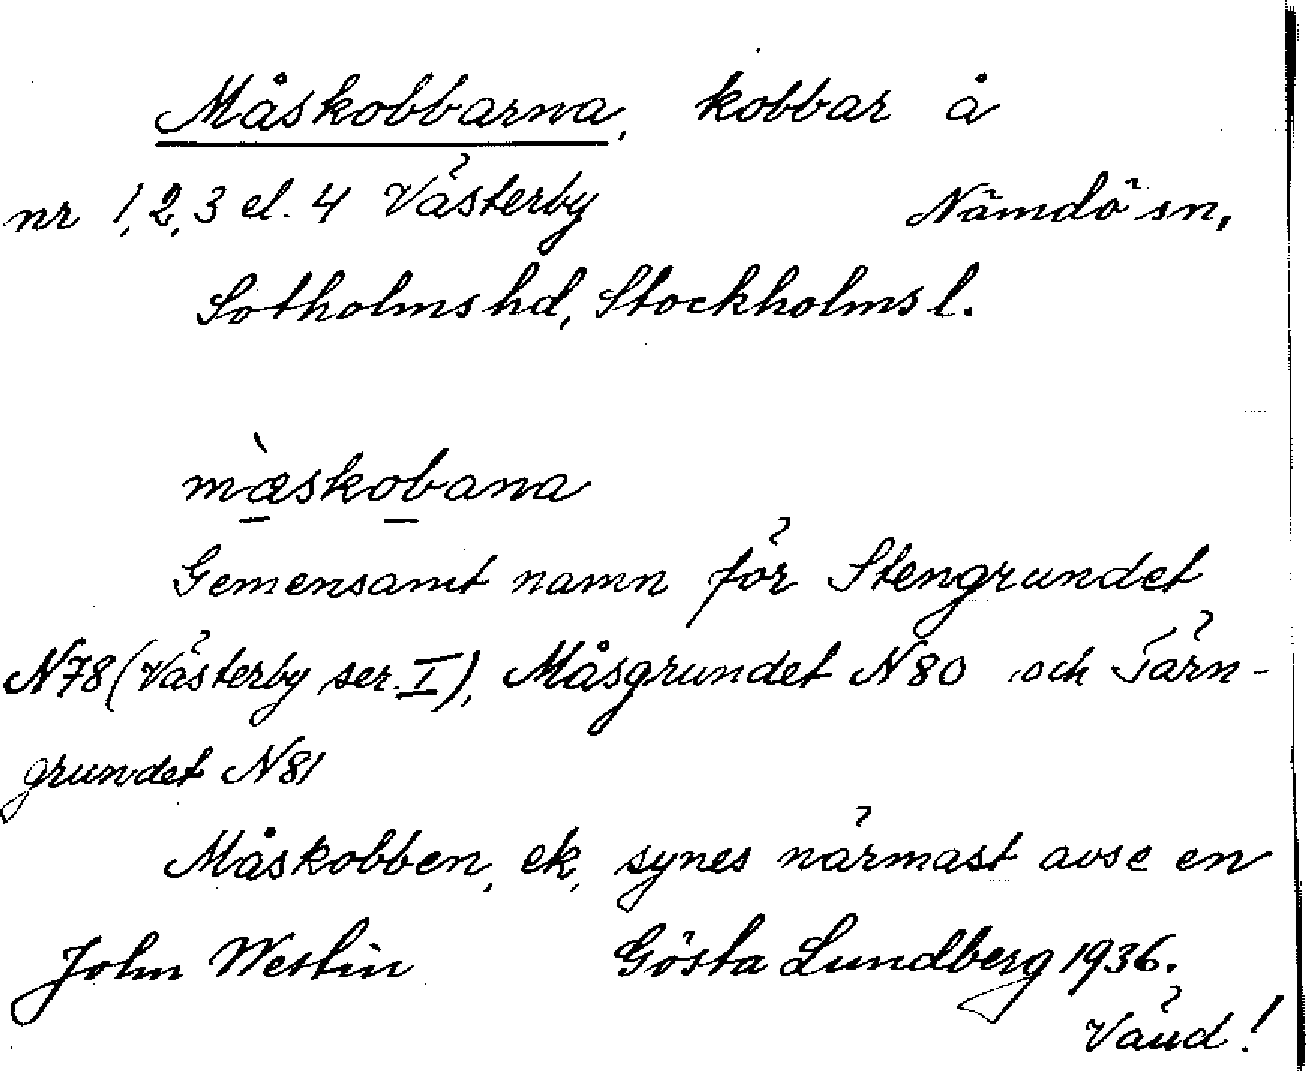 Måskobbarna, kobbar å
nr 1, 2, 3 el. 4 Västerby Nämdö sn,
Sotholms hd, Stockholms l.
mæ̀skobana
Gemensamt namn för Stengrundet
N78 (Västerby ser. I), Måsgrundet N80 och Tärn-
grundet N81
Måskobben, ek, synes närmast avse en
John Westin Gösta Lundberg 1936.
Vänd!